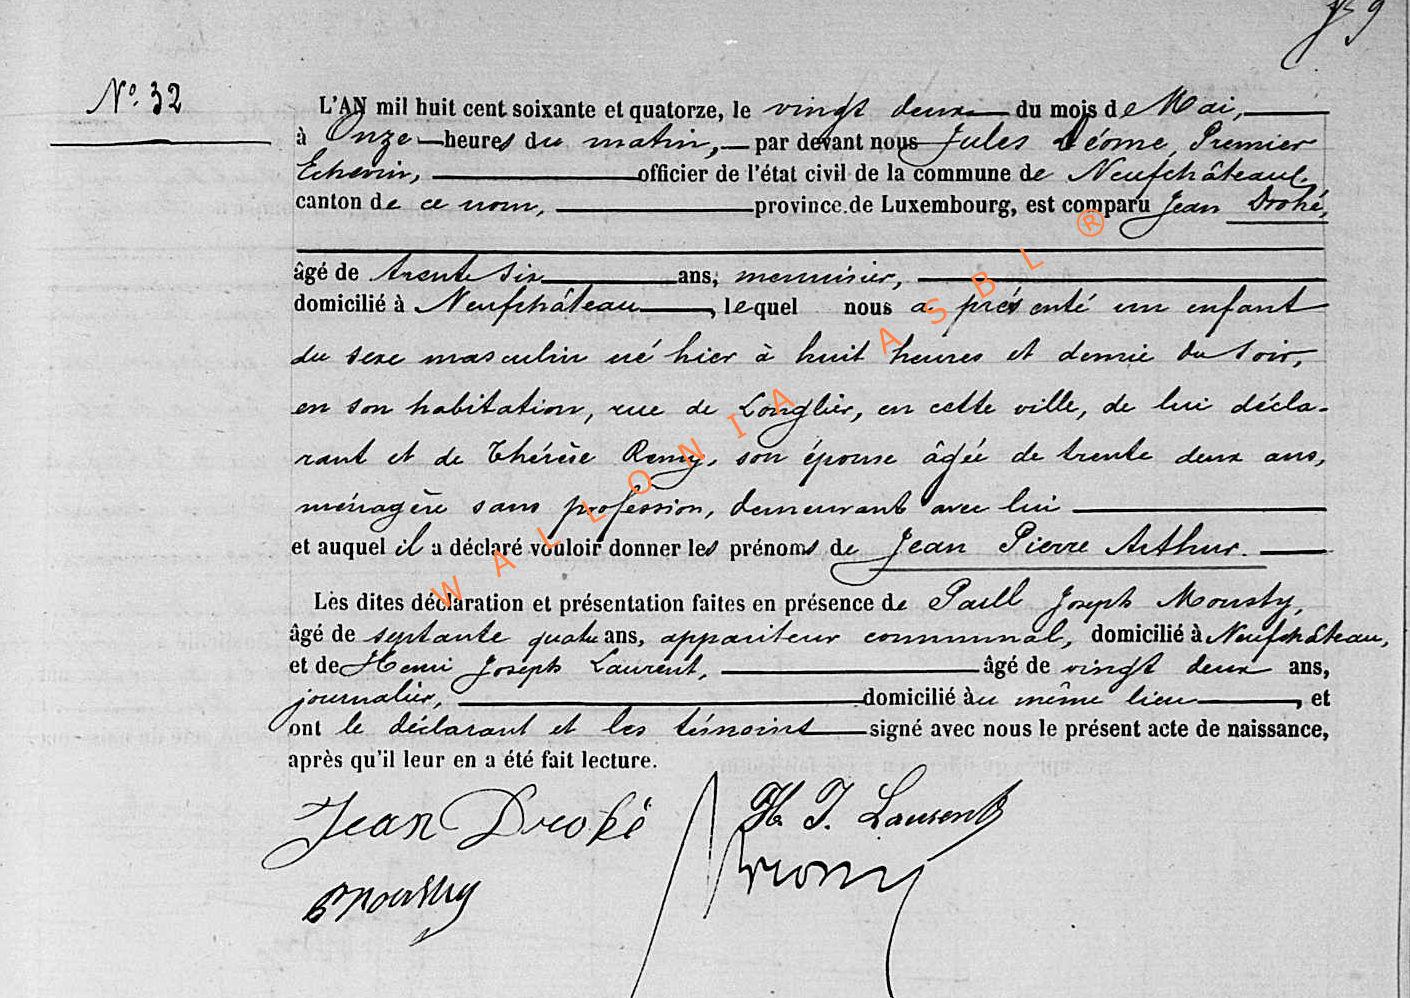 N° 32
L'AN mil huit cent soixante et quatorze, le vingt deux du mois de Mai,
à Onze heures du matin, par devant nous Jules Déome, Premier
Echevin, officier de l'état civil de la commune de Neufchâteau,
canton de ce nom, province de Luxembourg, est comparu Jean Droké,
âgé de trente six ans, menuisier,
domicilié à Neufchâteau, lequel nous a présenté un enfant
du sexe masculin né hier à huit heures et demie du soir,
en son habitation, rue de Longlier, en cette ville, de lui décla-
rant et de Thérèse Remy, son épouse âgée de trente deux ans,
ménagère sans profession, demeurant avec lui
et auquel il a déclaré vouloir donner les prénoms de Jean Pierre Arthur.
Lès dites déclaration et présentation faites en présence de Paul Joseph Mousty,
âgé de septante quatre ans, appariteur communal, domicilié à Neufchâteau,
et de Henri Joseph Laurent, âgé de vingt deux ans,
journalier, domicilié àu même lieu, et
ont le déclarant et les témoins signé avec nous le présent acte de naissance,
après qu'il leur en a été fait lecture.
Jean Droké H. J. Laurent
Mousty
WALLONIA ASBL ®